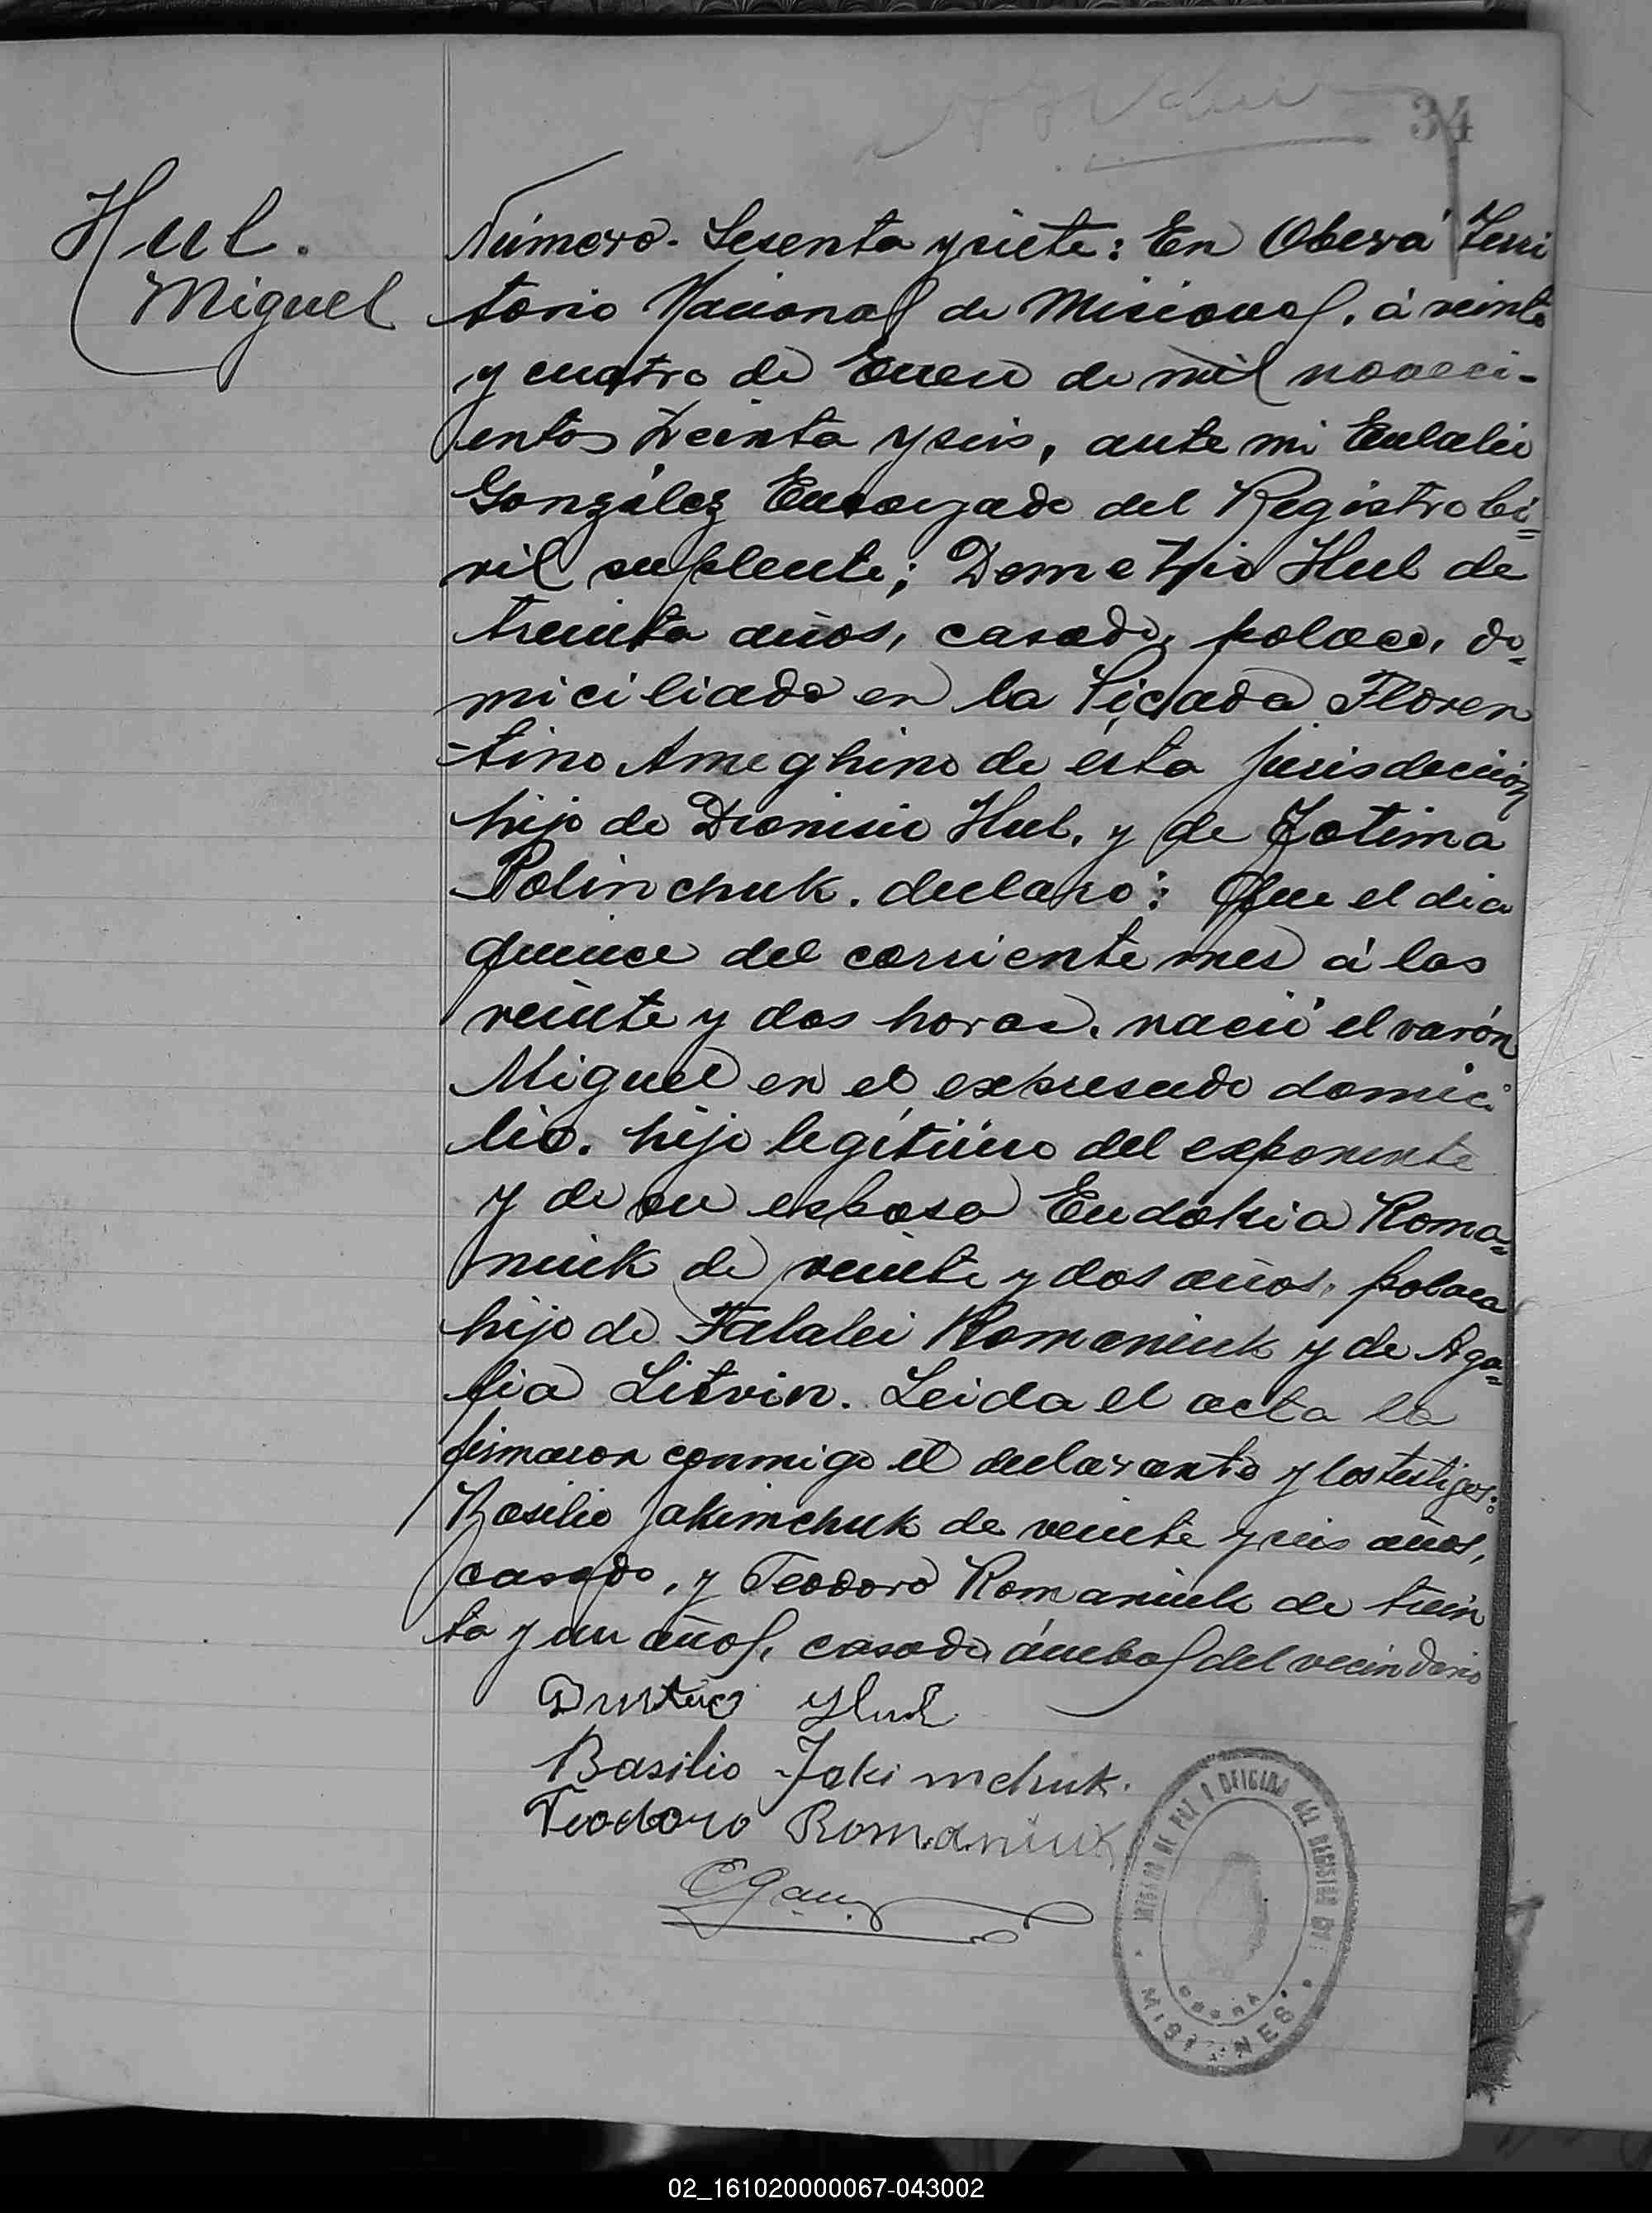 34
Hul.
Miguel
Número. Sesenta y siete: En Oberá Terri
torio Nacional de Misiones, á veinte
y cuatro de Enero de mil noveci-
entos treinta y seis, ante mi Eulalio
González Encargado del Registro Ci=
vil suplente; Demetrio Hul de
treinta años, casado, polaco, do=
miciliado en la Picada Floren
-tino Ameghino de ésta jurisdicción
hijo de Dionisio Hul, y de Fotima
Polinchuk. declaró: Que el dia
quince del corriente mes á las
veinte y dos horas, nació el varón
Miguel en el expresado domici
lio. hijo legítimo del exponente
y de su esposa Eudokia Roma=
niuk de veinte y dos años, polaca
hija de Falalei Romaniuk y de Aga=
fia Litvin. Leida el acta la
firmaron conmigo el declarante y los testigos:
Basilio Jakimchuk de veinte y seis años,
casado, y Teodoro Romaniuk de trein
ta y un años, casado, ámbos del vecindario
Hul
Basilio Jakimchuk.
Teodoro Romaniuk
JUZGADO DE PAZ Y OFICINA DEL REGISTRO CIVIL
OBERÁ
MISIONES
02_161020000067-043002